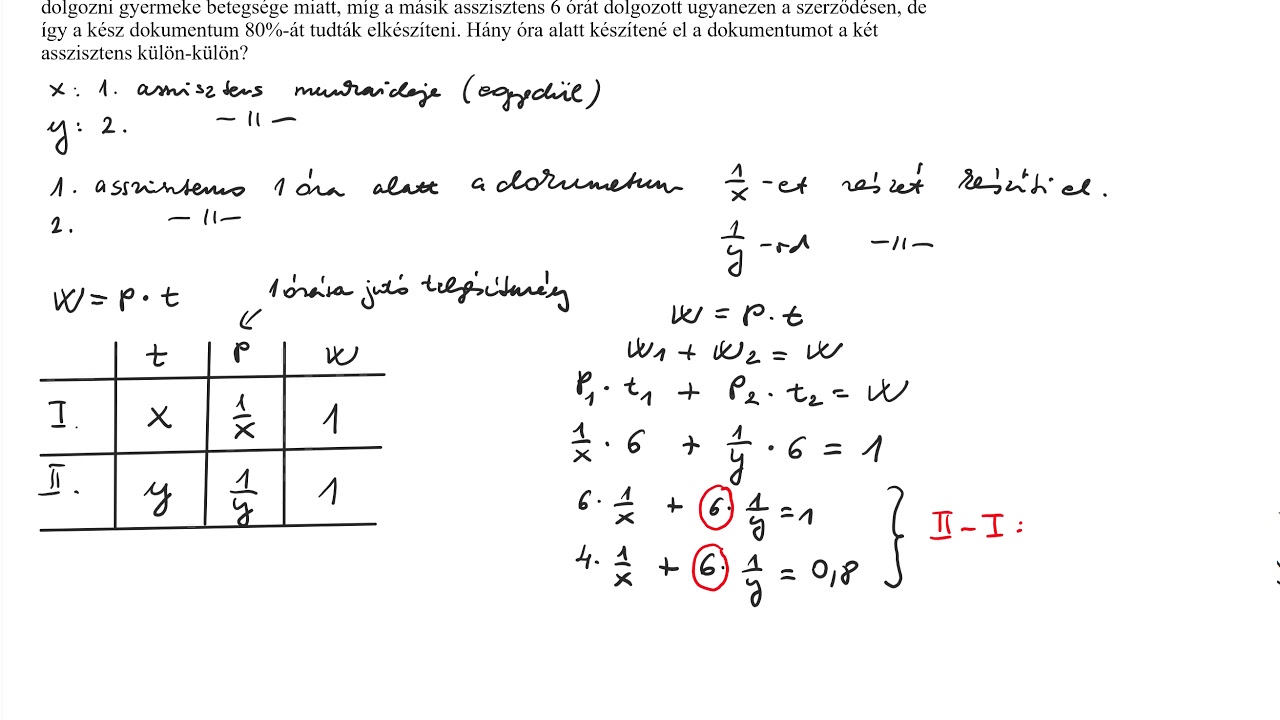 dolgozni gyermeke betegsége miatt, míg a másik asszisztens 6 órát dolgozott ugyanezen a szerződésen, de
így a kész dokumentum 80%-át tudták elkészíteni. Hány óra alatt készítené el a dokumentumot a két
asszisztens külön-külön?
x: 1. asszisztens munkaideje (egyedül)
y: 2. —II—
1. asszisztens 1 óra alatt a dokumentum 1/x -et részét készíti el.
2. —II— 1/y -rd —II—
W = P · t
1 órára jutó teljesítmény
t P W
I. x 1/x 1
II. y 1/y 1
W = P · t
W1 + W2 = W
P1 · t1 + P2 · t2 = W
1/x · 6 + 1/y · 6 = 1
6 · 1/x + 6 · 1/y = 1
4 · 1/x + 6 · 1/y = 0,8
II - I :